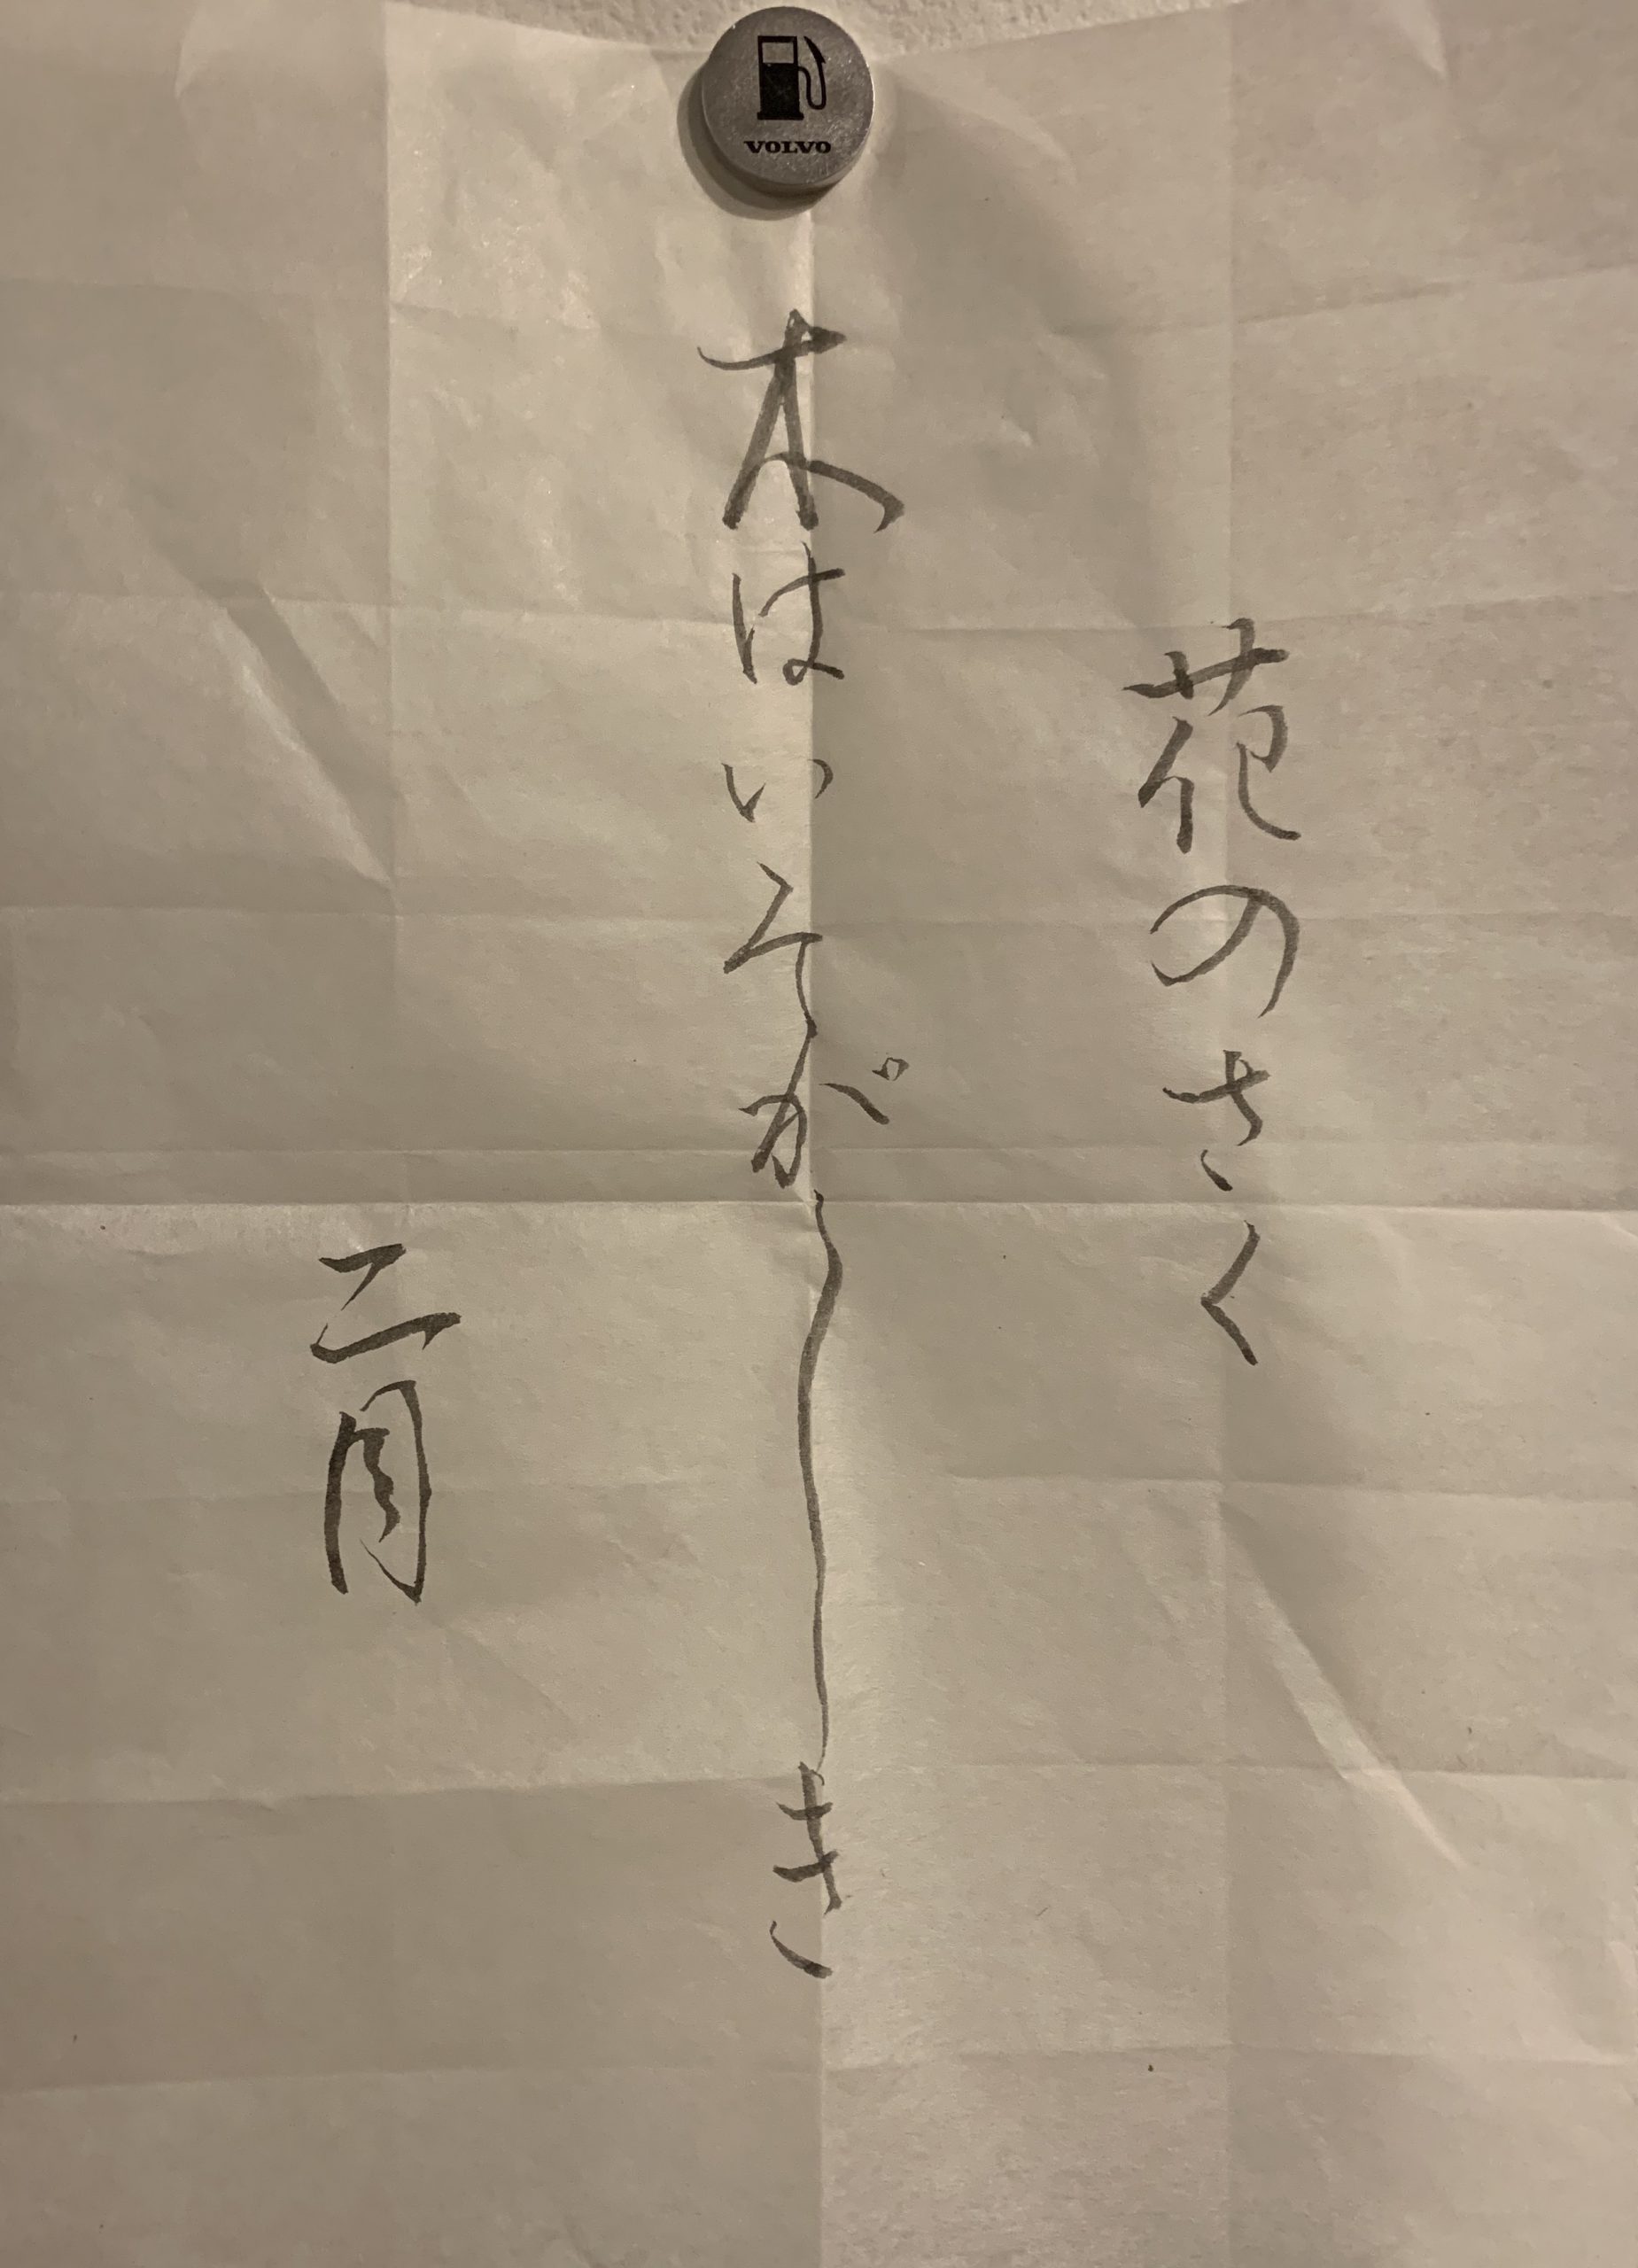 VOLVO
花のさく
木はいそがしき
二月